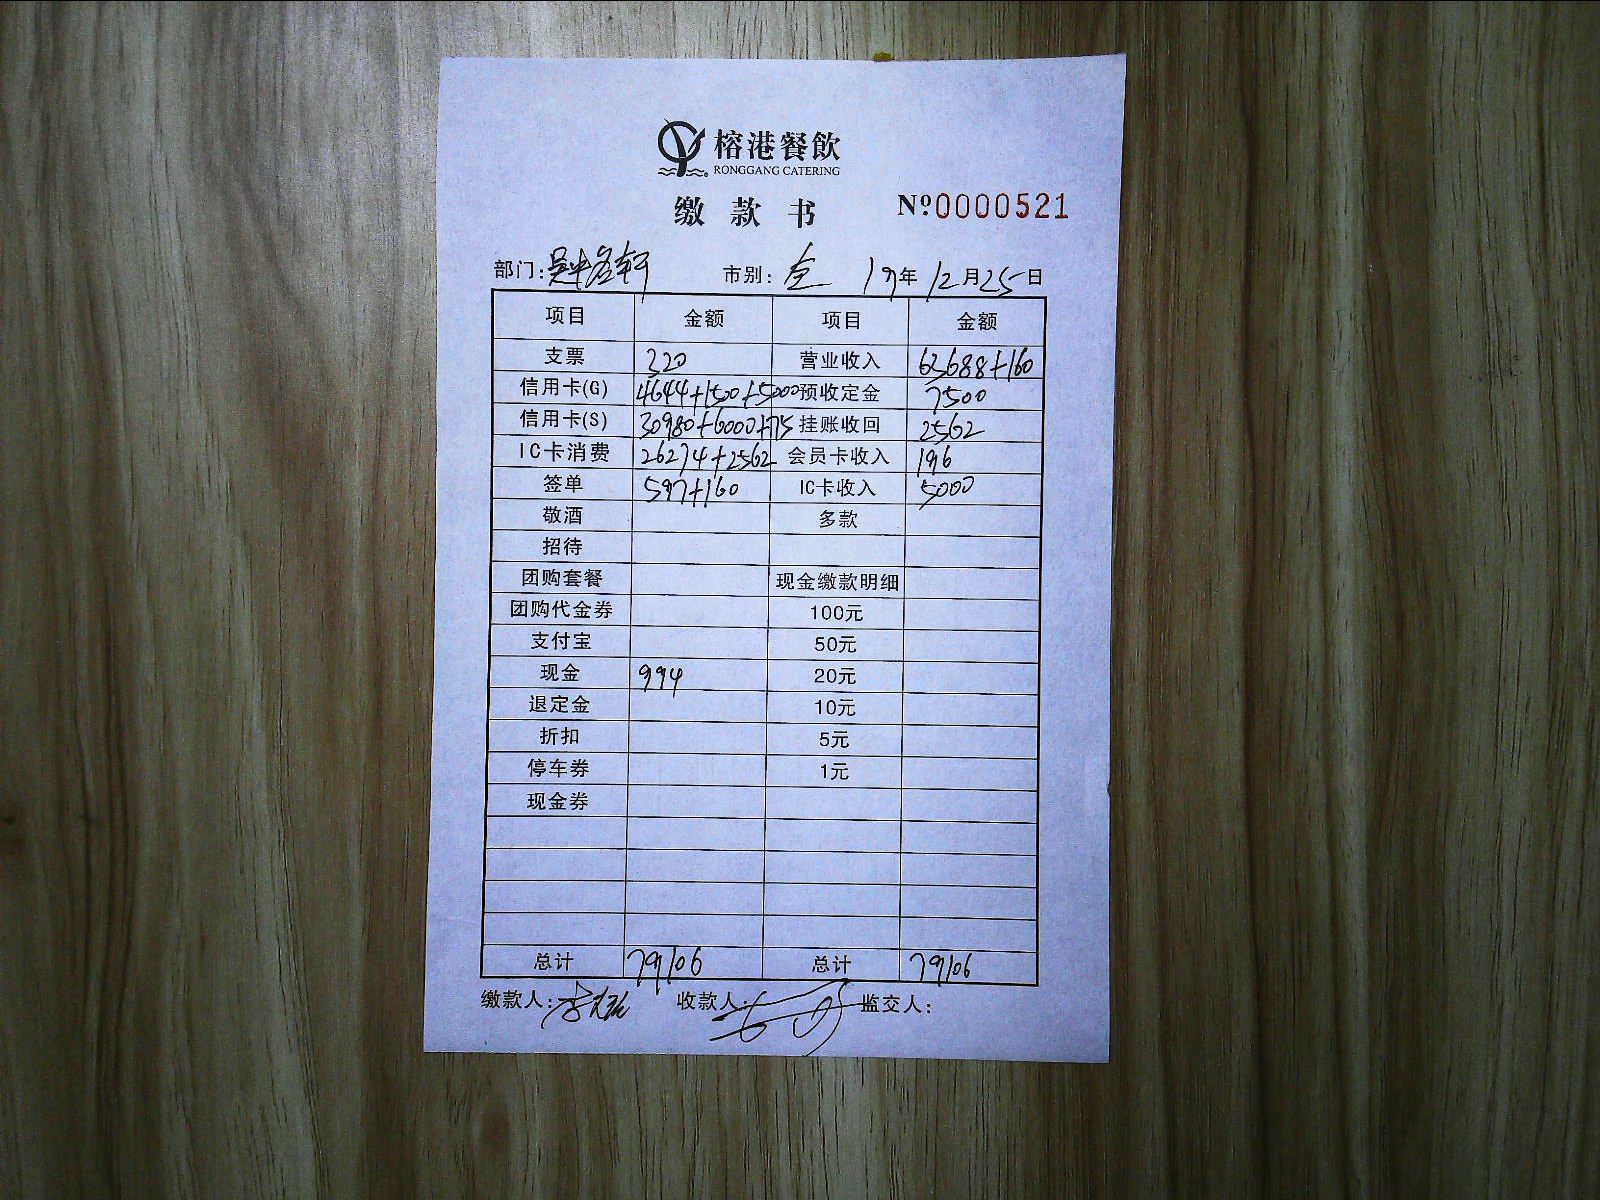 榕港餐飲
RONGGANG CATERING
缴款书
Nº0000521
部门: 市别:全 19年12月25日
项目 金额 项目 金额
支票 320 营业收入 63688+160
信用卡(G) 4644+1500+5000 预收定金 7500
信用卡(S) 30980+6000+75 挂账收回 2562
IC卡消费 26274+2562 会员卡收入 196
签单 597+160 IC卡收入 5000
敬酒 多款
招待
团购套餐 现金缴款明细
团购代金券 100元
支付宝 50元
现金 994 20元
退定金 10元
折扣 5元
停车券 1元
现金券
总计 79106 总计 79106
缴款人: 收款人: 监交人: